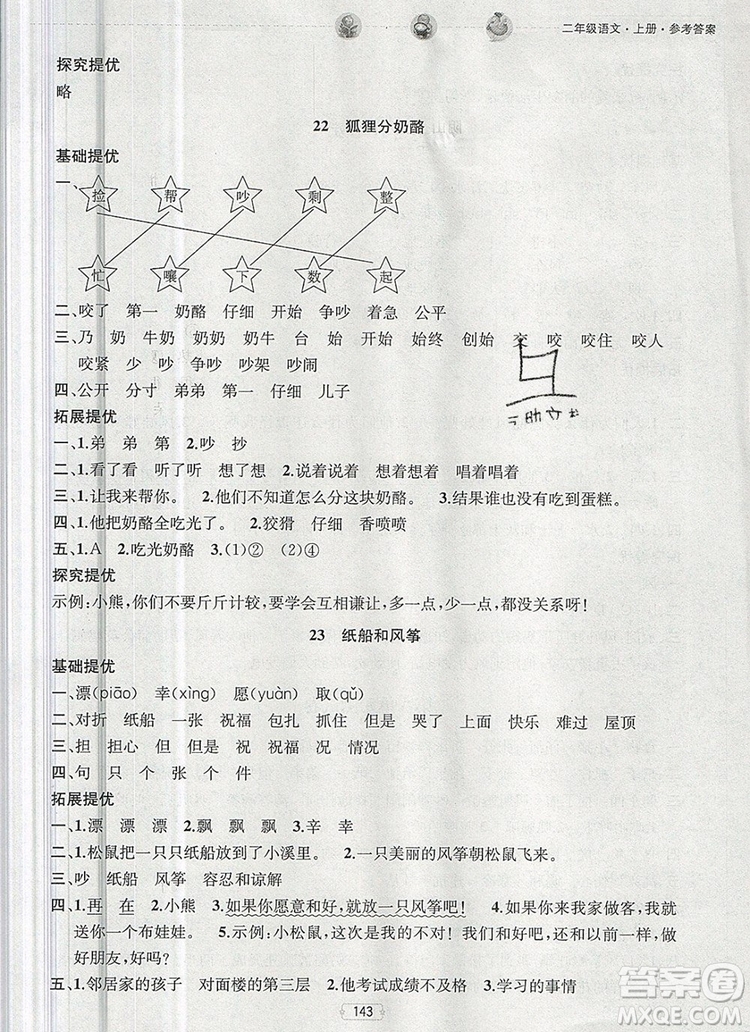 二年级语文·上册·参考答案
探究提优
略
22 狐狸分奶酪
基础提优
一、捡 帮 吵 剩 整
忙 嚷 下 数 起
二、咬了 第一 奶酪 仔细 开始 争吵 着急 公平
三、乃 奶 牛奶 奶奶 奶牛 台 始 开始 始终 创始 交 咬 咬住 咬人
咬紧 少 吵 争吵 吵架 吵闹
四、公开 分寸 弟弟 第一 仔细 儿子
拓展提优
一、1.弟 弟 第 2.吵 抄
二、1.看了看 听了听 想了想 2.说着说着 想着想着 唱着唱着
三、1.让我来帮你。 2.他们不知道怎么分这块奶酪。 3.结果谁也没有吃到蛋糕。
四、1.他把奶酪全吃光了。 2.狡猾 仔细 香喷喷
五、1.A 2.吃光奶酪 3.(1)② (2)④
探究提优
示例:小熊,你们不要斤斤计较,要学会互相谦让,多一点,少一点,都没关系呀!
23 纸船和风筝
基础提优
一、漂(piāo) 幸(xìng) 愿(yuàn) 取(qǔ)
二、对折 纸船 一张 祝福 包扎 抓住 但是 哭了 上面 快乐 难过 屋顶
三、担 担心 但 但是 祝 祝福 况 情况
四、句 只 个 张 个 件
拓展提优
一、1.漂 漂 漂 2.飘 飘 飘 3.辛 幸
二、1.松鼠把一只只纸船放到了小溪里。 2.一只美丽的风筝朝松鼠飞来。
三、吵 纸船 风筝 容忍和谅解
四、1.再 在 2.小熊 3.如果你愿意和好,就放一只风筝吧! 4.如果你来我家做客,我就
送你一个布娃娃。 5.示例:小松鼠,这次是我的不对! 对不起! 我们还做好
朋友,好吗?
五、1.邻居家的孩子 对面楼的第三层 2.他考试成绩不及格 3.学习的事情
143
答案圈
MXQE.COM